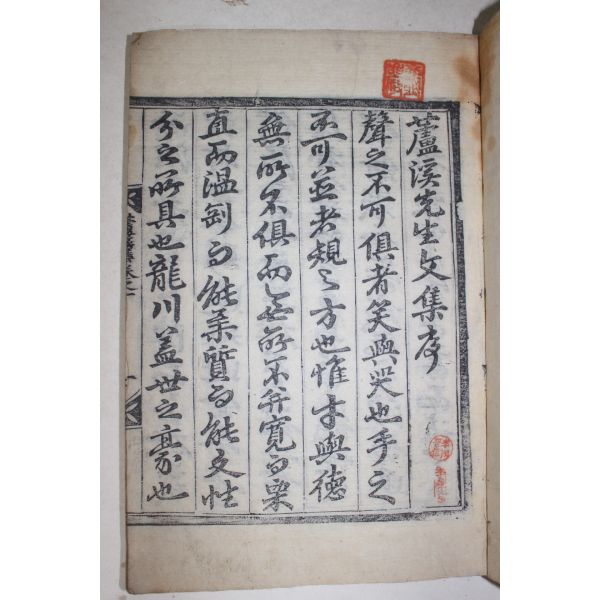 蘆溪先生文集序
聲之不可俱者笑與哭也手之
不可並者規與方也惟才與德
無所不俱而無所不幷寬而栗
直而溫剛而能柔質而能文性
分之所具也龍川蓋世之豪也